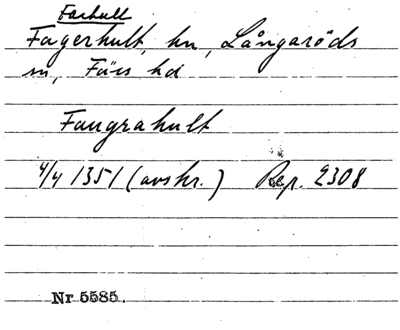 Farhult
Fagerhult, hn, Långaröds
sn, Färs hd
Faugrahult
4/4 1351 (avskr.) Rep. 2308
Nr 5585.